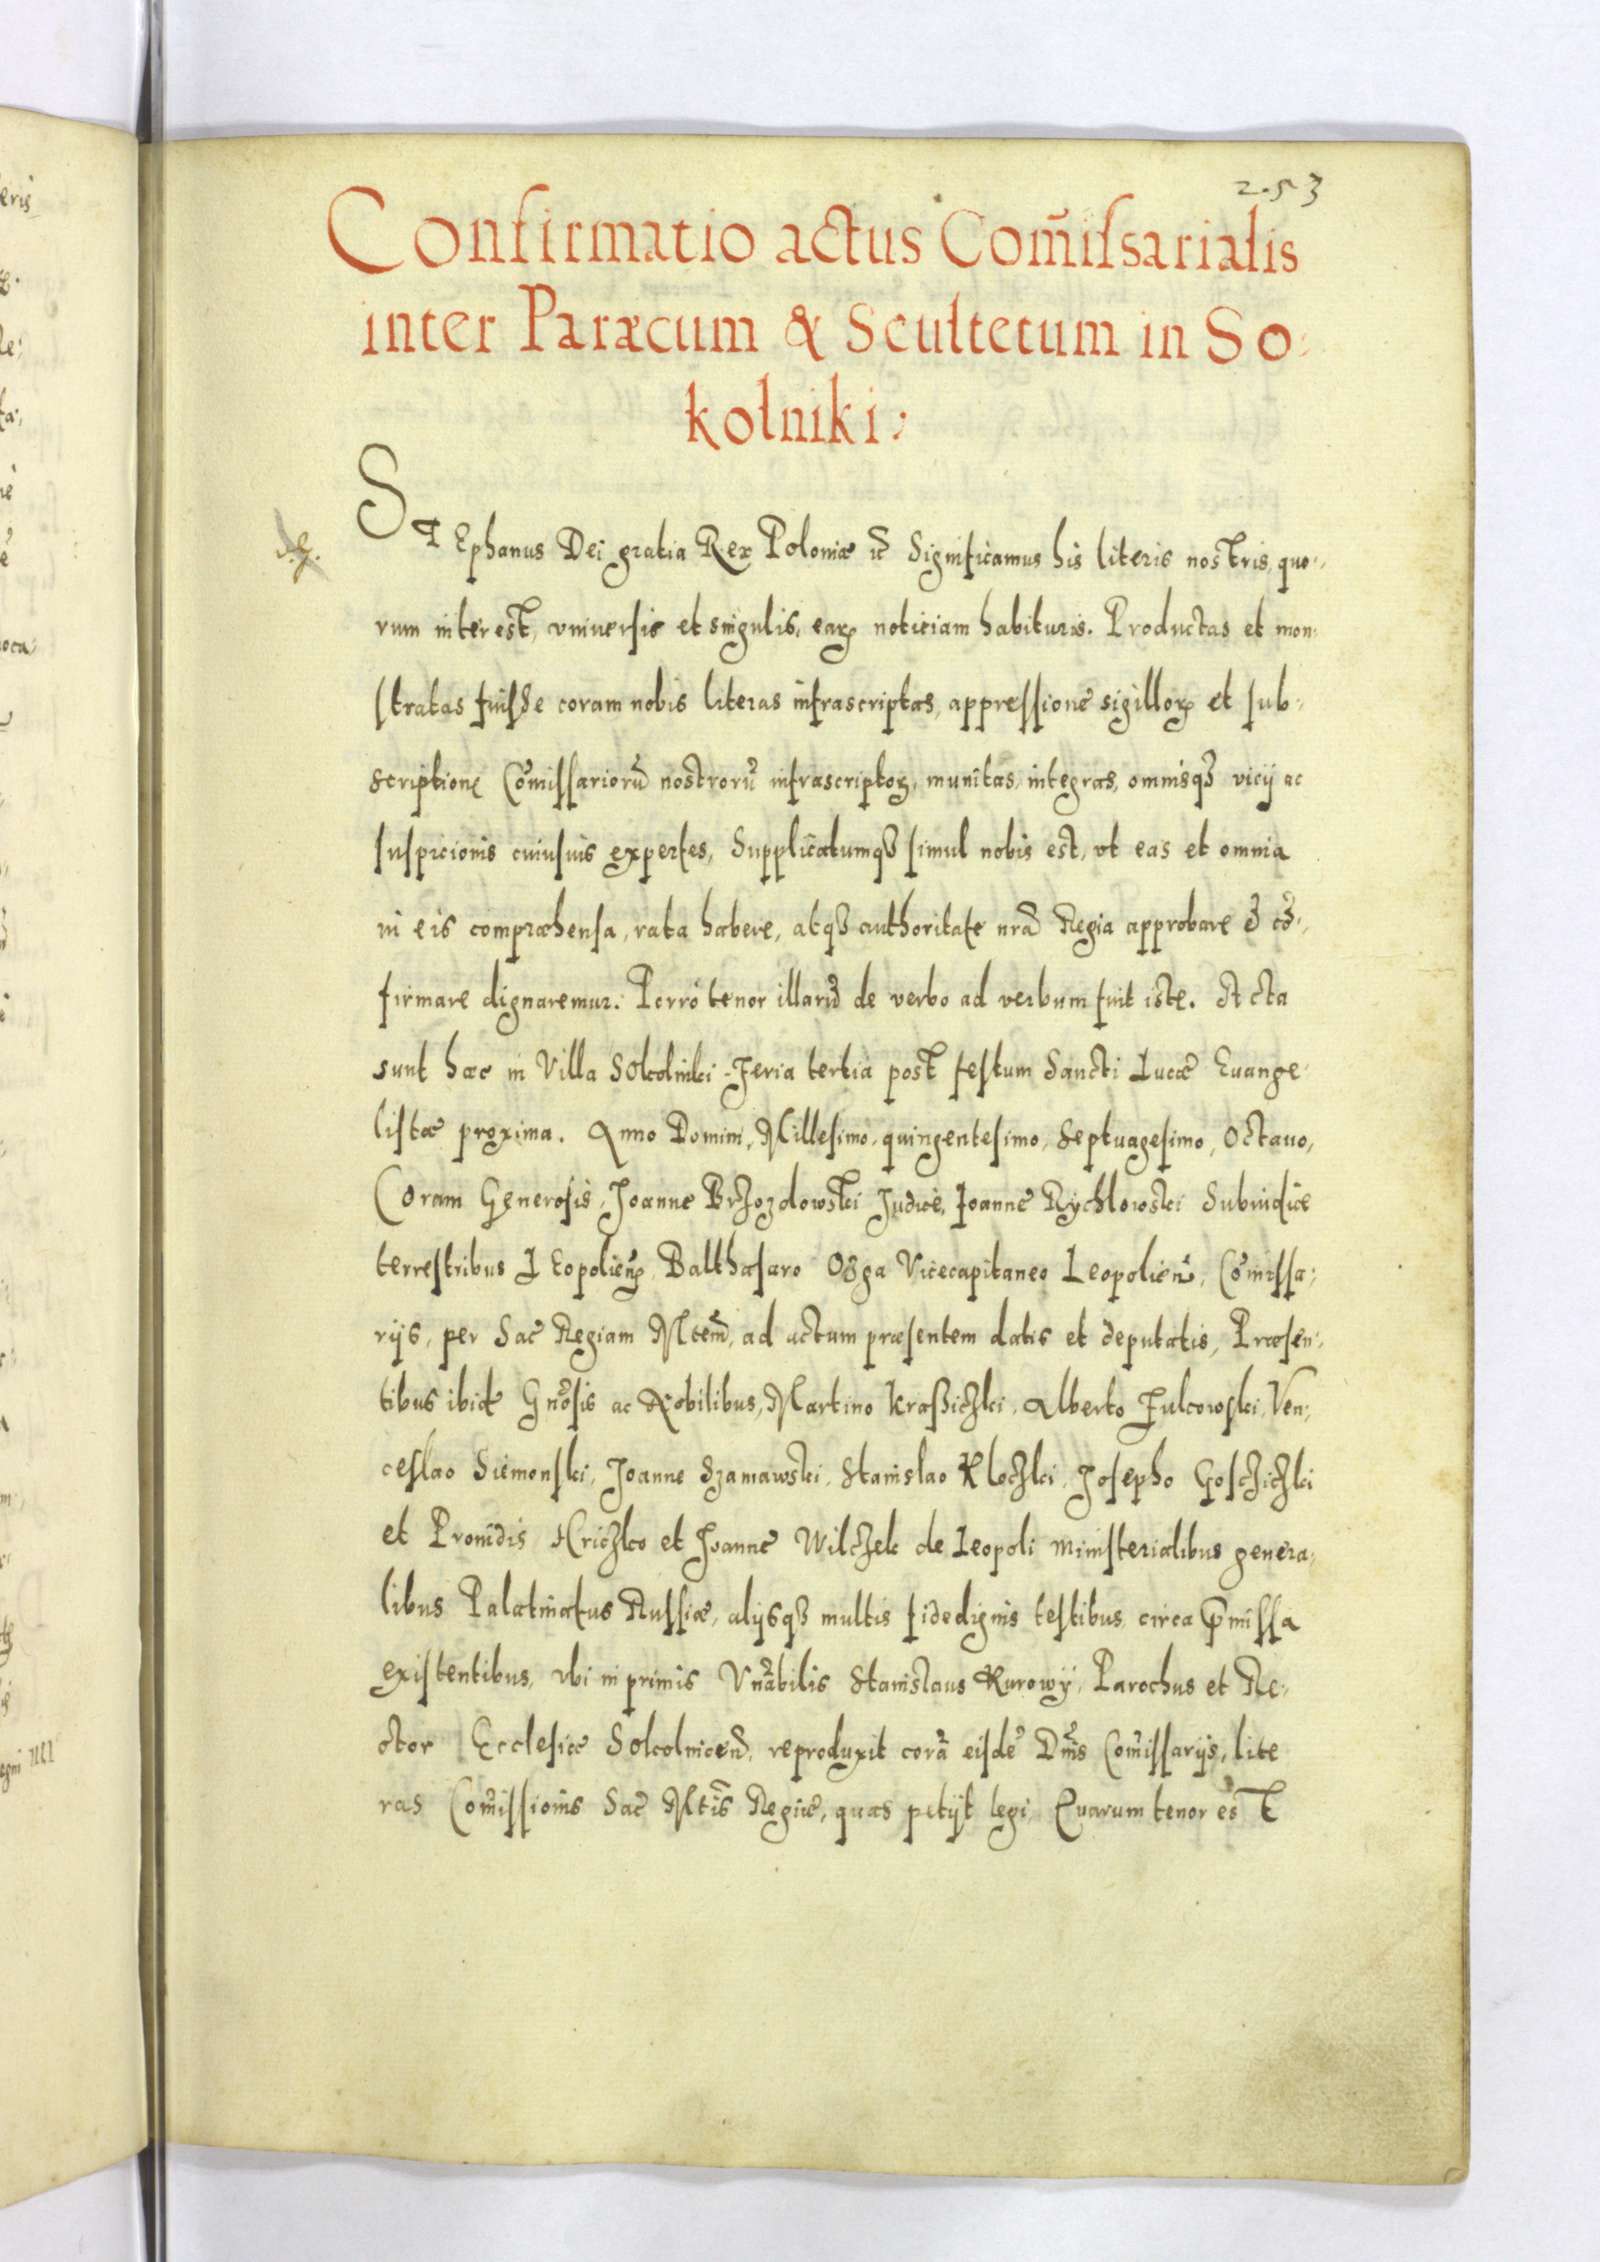 2.53
Confirmatio actus Com̃issarialis
inter Paræcum & Scultetum in So:
kolniki:
STEphanus Dei gratia Rex Poloniæ etc̃ Significamus his literis nostris, quo:
rum interest, vniuersis et singulis, earꝝ noticiam habituris. Productas et mon:
stratas fuisse coram nobis literas infrascriptas, appressione sigillorꝝ et sub:
scriptione Com̃issariorũ nostrorũ infrascriptorꝝ, munitas, integras, omnisqꝫ vicij ac
suspicionis cuiusuis expertes, Supplicatumqꝫ simul nobis est, vt eas et omnia
in eis compræhensa, rata habere, atqꝫ authoritate nrã Regia approbare et cõ:
firmare dignaremur. Porrò tenor illarũ de verbo ad verbum fuit iste. Acta
sunt hæc in Villa Sokolniki Feria tertia post festum Sancti Lucæ Euange:
listæ proxima. Anno Domini, Millesimo, quingentesimo, Septuagesimo, Octauo,
Coram Generosis, Joanne Brzozdowski Judice, Joanne Rychlowski Subiudice
terrestribus Leopolieñ, Balthasaro Ozga Vicecapitaneo Leopolieñ, Com̃issa:
rijs, per Sac̃ Regiam Mtem̃, ad actum præsentem datis et deputatis, Præsen:
tibus ibidẽ Gnõsis ac Nobilibus, Martino Kraßiczki, Alberto Fulcowski, Ven:
ceslao Siemonski, Joanne Szamawski, Stanislao Kloczki, Josepho Goscziczki
et Prouidis Hriczko et Joanne Wilczek de Leopoli ministerialibus genera:
libus Palatinatus Russiæ, alijsqꝫ multis fidedignis testibus circa p̃missa
existentibus, vbi in primis Vnãbilis Stanislaus Kurowÿ, Parochus et Re:
ctor Ecclesiæ Sokolniceñ, reproduxit corã eisdẽ Dnĩs Com̃issarijs, lite
ras Com̃issionis Sac̃ Mtis̃ Regiæ, quas petijt legi, Quarum tenor est